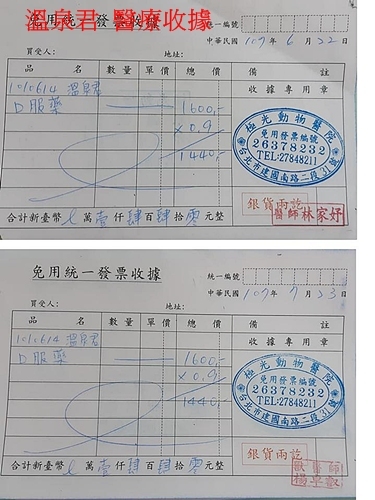 溫泉君 醫療收據
免用統一發票收據
統一編號
中華民國 107年 6月 22日
買受人: 地址:
品名 數量 單價 總價 備註
1010614 溫泉君
口服藥 1600.- 收據專用章
×0.9
1440.-
極光動物醫院
免用發票編號
26378232
TEL:27848211
台北市建國南路二段31號
銀貨兩訖
醫師林家妤
合計新臺幣 萬壹仟肆百肆拾零元整
免用統一發票收據
統一編號
中華民國 107年 7月 23日
買受人: 地址:
品名 數量 單價 總價 備註
1010614 溫泉君
口服藥 1600.- 收據專用章
×0.9
1440.-
極光動物醫院
免用發票編號
26378232
TEL:27848211
台北市建國南路二段31號
銀貨兩訖
獸醫師
合計新臺幣 萬壹仟肆百肆拾零元整